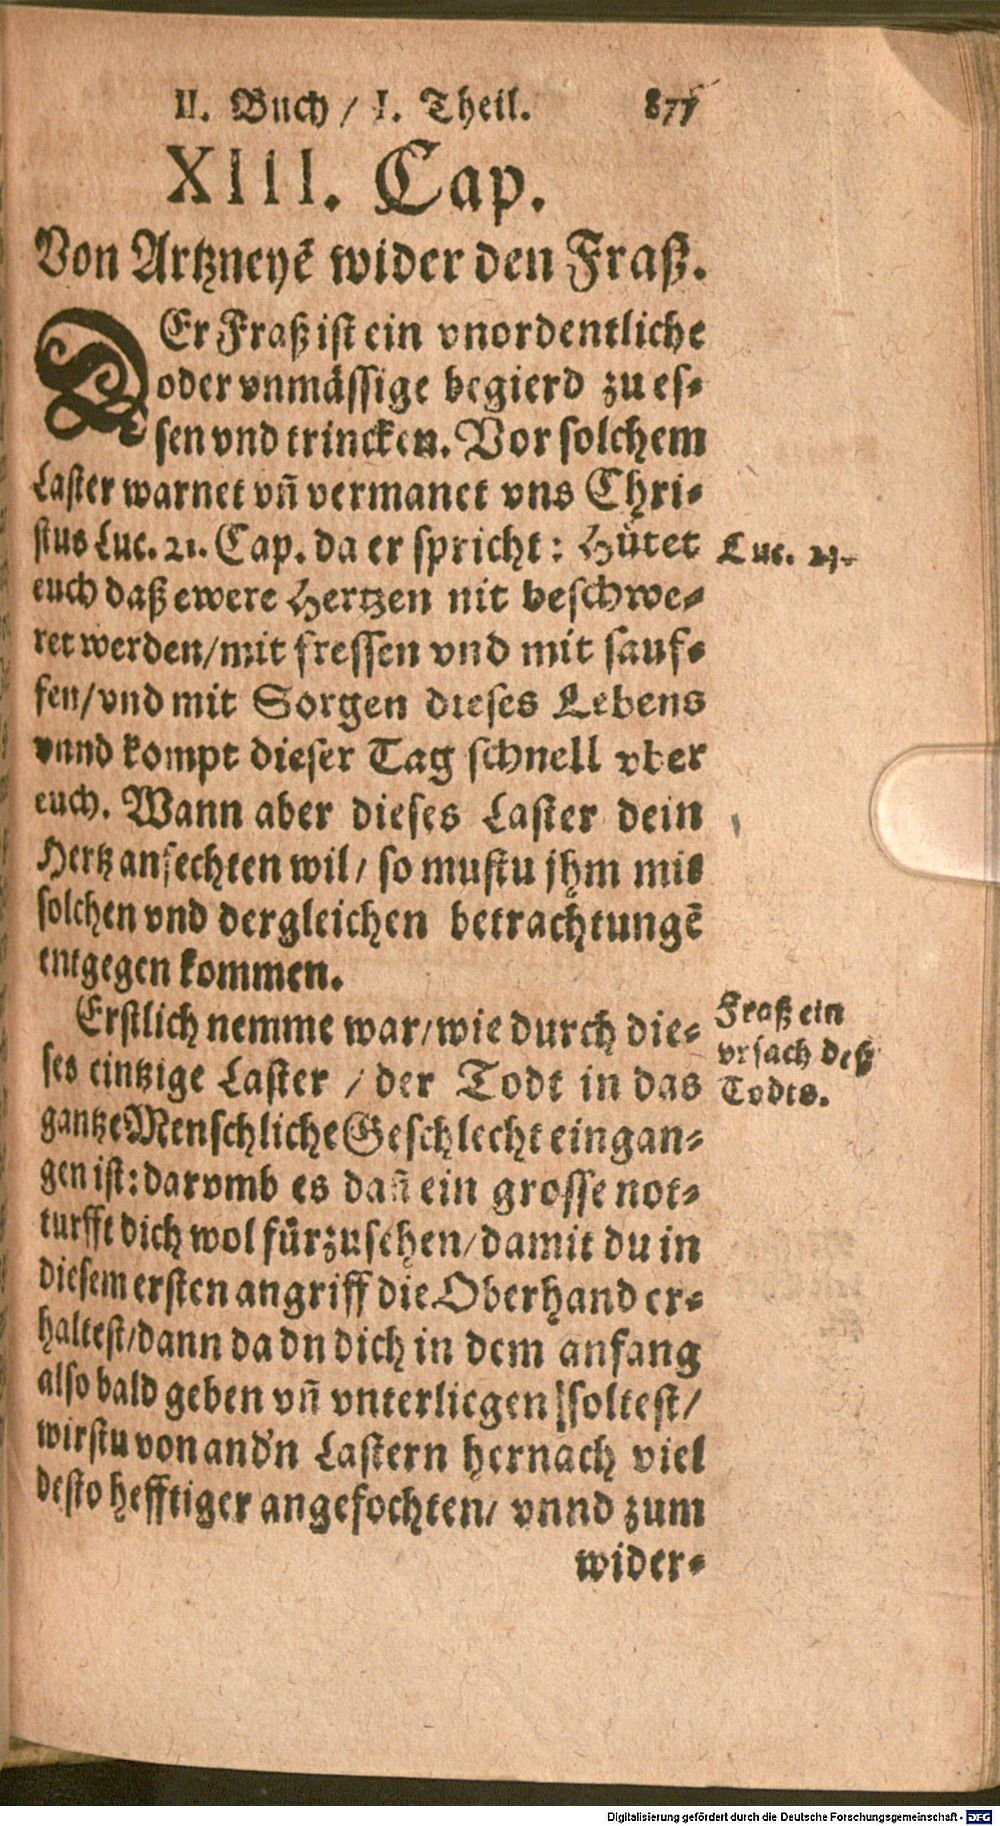 II. Buch / I. Theil. 877
XIII. Cap.
Von Artzneyẽ wider den Fraß.
DEr Fraß ist ein vnordentliche
oder vnmässige begierd zu es⸗
sen vnd trincken. Vor solchem
Laster warnet vñ vermanet vns Chri⸗
stus Luc. 21. Cap. da er spricht: Hütet
Luc. 21.
euch daß ewere Hertzen nit beschwe⸗
ret werden/mit fressen vnd mit sauf⸗
fen/vnd mit Sorgen dieses Lebens
vnnd kompt dieser Tag schnell vber
euch. Wann aber dieses Laster dein
Hertz anfechten wil/ so mustu jhm mit
solchen vnd dergleichen betrachtungẽ
entgegen kommen.
Erstlich nemme war/wie durch die⸗
ses eintzige Laster / der Todt in das
gantze Menschliche Geschlecht eingan⸗
Fraß ein
vrsach deß
Todts.
gen ist: darvmb es dañ ein grosse not⸗
turfft dich wol fürzusehen/damit du in
diesem ersten angriff die Oberhand er⸗
haltest/dann da dn dich in dem anfang
also bald geben vñ vnterliegen soltest/
wirstu von and'n Lastern hernach viel
desto hefftiger angefochten/ vnnd zum
wider⸗
Digitalisierung gefördert durch die Deutsche Forschungsgemeinschaft - DFG